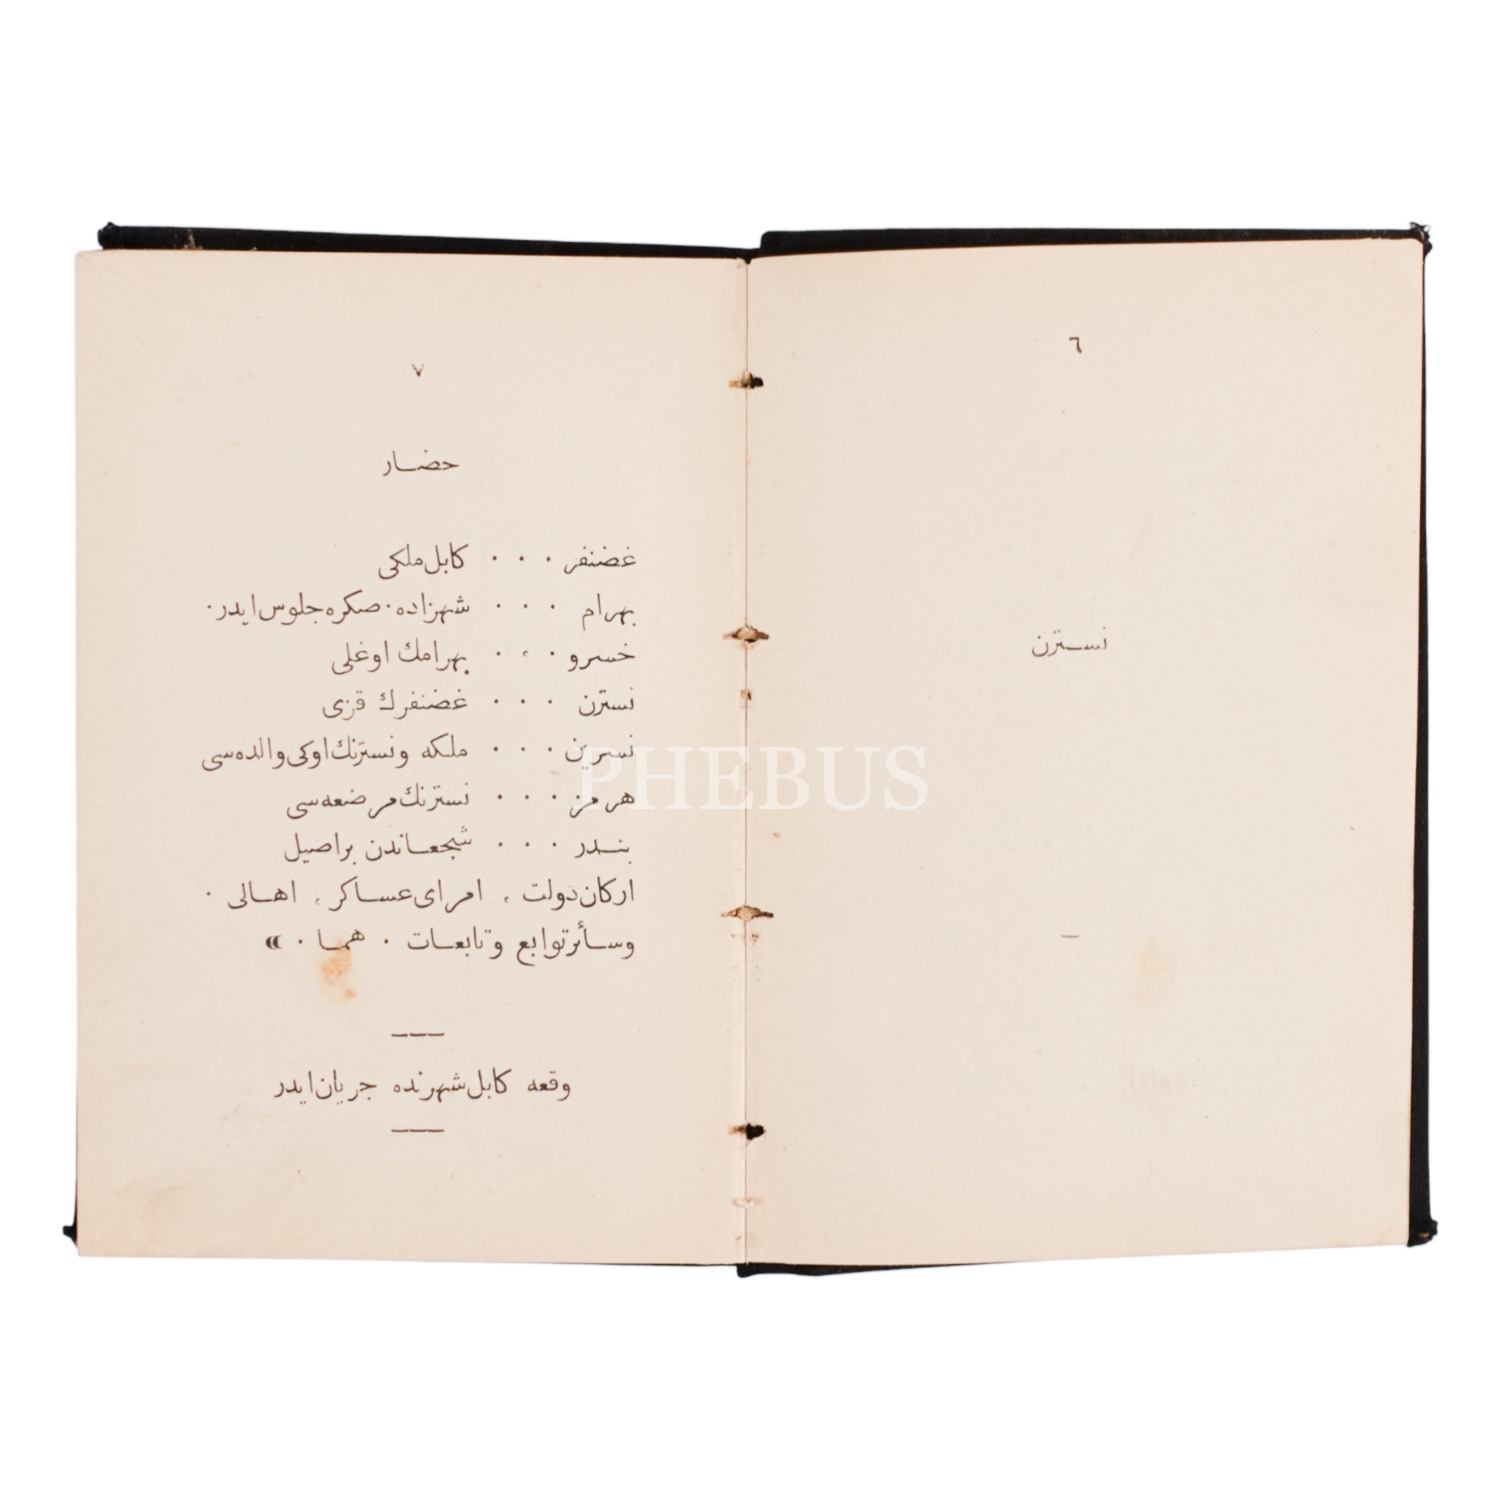 ٦
نسترن
٧
حضار
غضنفر . . . كابل ملكی
بهرام . . . شهزاده . صكره جلوس ايدر .
خسرو . . . بهرامك اوغلی
نسترن . . . غضنفرك قزی
نسرين . . . ملكه ونسترنك اوكی والده سی
هرمز . . . نسترنك مرضعه سی
بندر . . . شجعاندن بر اصيل
اركان دولت ، امرای عساكر ، اهالی .
وسائر توابع وتابعات . هما . »
وقعه كابل شهرنده جريان ايدر
PHEBUS